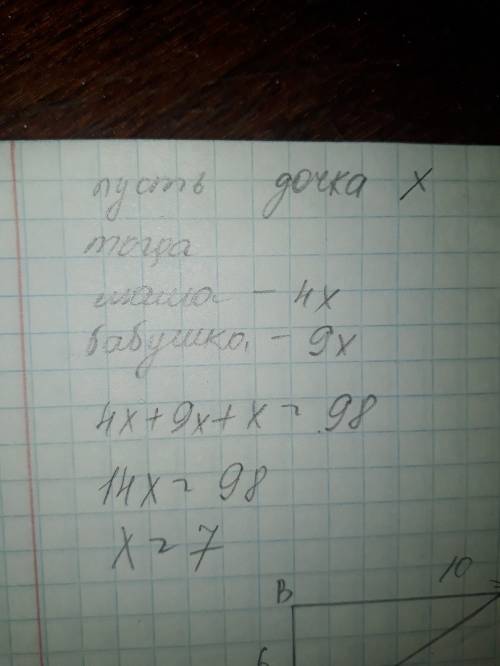 пусть дочка x
тогда
мама - 4x
бабушка - 9x
4x+9x+x = 98
14x = 98
x = 7
B 10
6